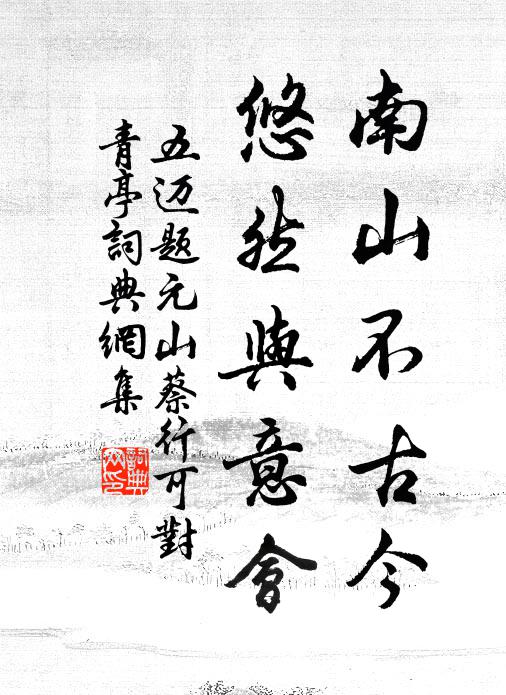 南山不古今
悠然與意會
五迈题元山蔡行可對
青亭詞典網集
詞典網印